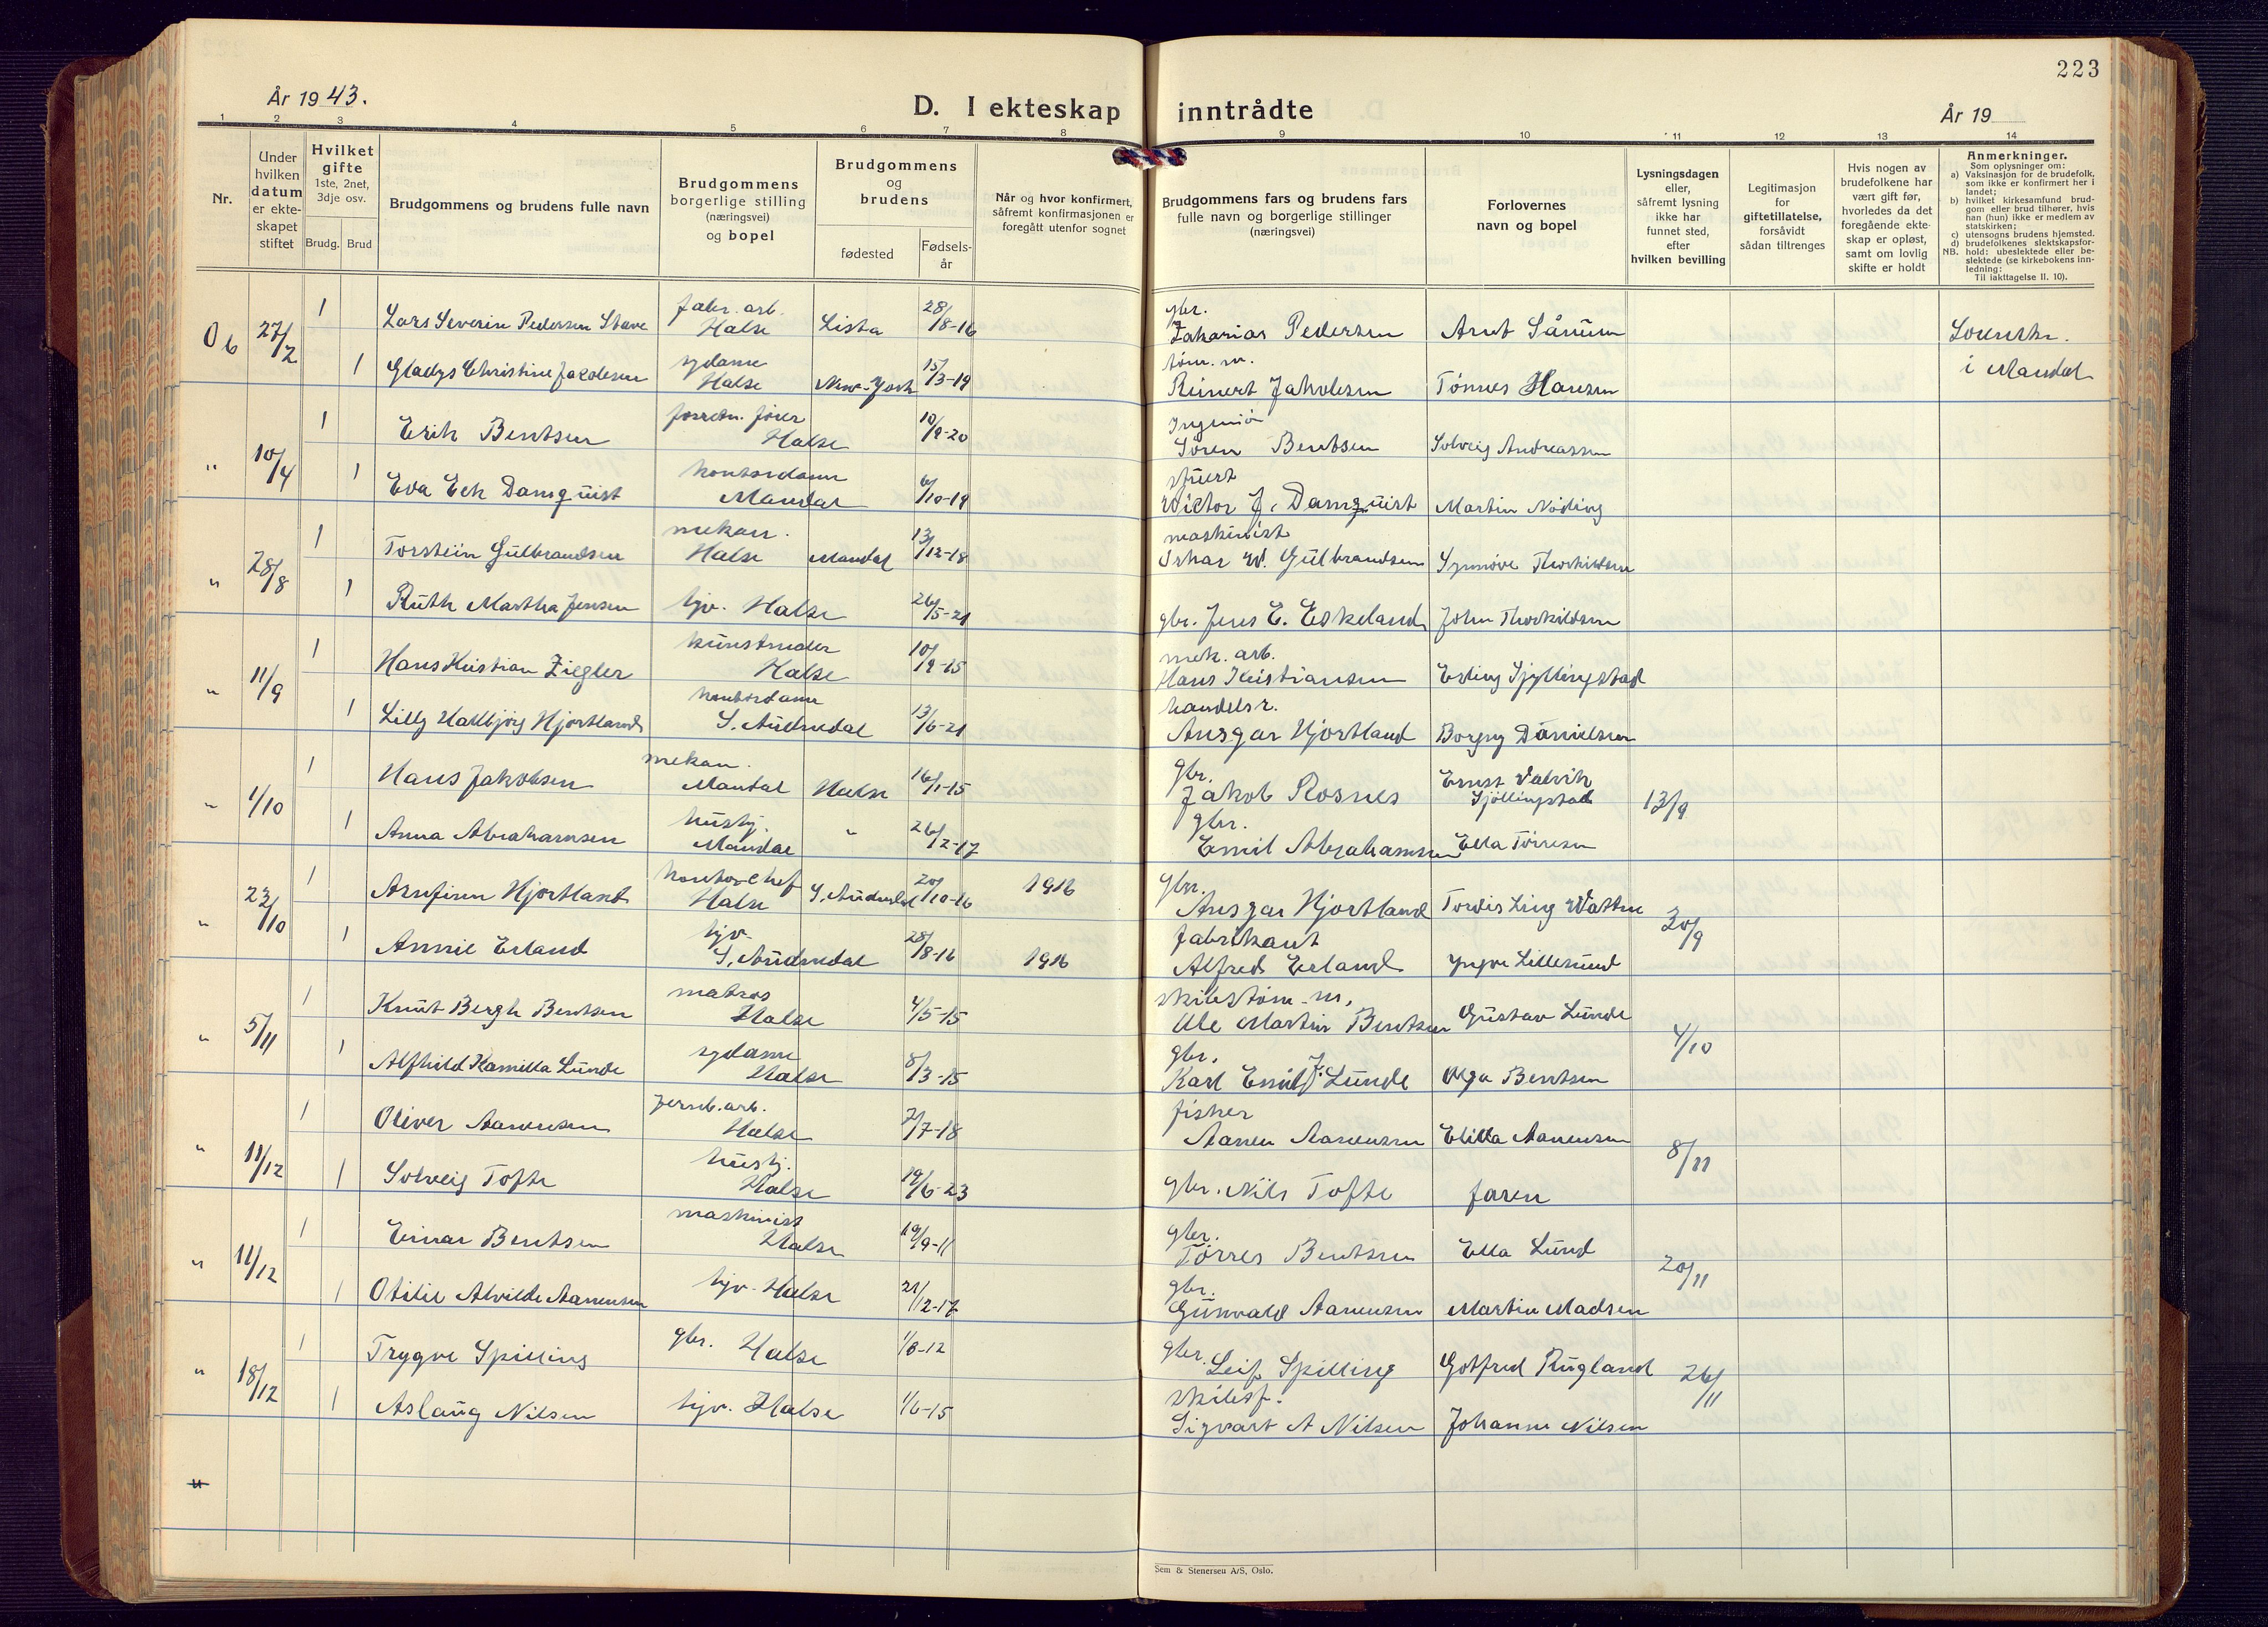 223
År 1943.
D. I ekteskap inntrådte
År 19
1 2 3 4 5 6 7 8 9 10 11 12 13 14
Nr.
Under hvilken datum er ekteskapet stiftet
Hvilket gifte
1ste, 2net, 3dje osv.
Brudg. Brud
Brudgommens og brudens fulle navn
Brudgommens borgerlige stilling (næringsvei) og bopel
Brudgommens og brudens
fødested
Fødselsår
Når og hvor konfirmert, såfremt konfirmasjonen er foregått utenfor sognet
Brudgommens fars og brudens fars fulle navn og borgerlige stillinger (næringsvei)
Forlovernes navn og bopel
Lysningsdagen eller, såfremt lysning ikke har funnet sted, efter hvilken bevilling
Legitimasjon for giftetillatelse, forsåvidt sådan tiltrenges
Hvis nogen av brudefolkene har vært gift før, hvorledes da det foregående ekteskap er opløst, samt om lovlig skifte er holdt
Anmerkninger.
Som oplysninger om:
a) Vaksinasjon for de brudefolk, som ikke er konfirmert her i landet;
b) hvilket kirkesamfund brudgom eller brud tilhører, hvis han (hun) ikke er medlem av statskirken;
c) utensogns brudens hjemsted.
d) brudefolkenes slektskapsforhold: ubeslektede eller beslektede (se kirkebokens innledning:
NB. Til iakttagelse II. 10).
Ob 27/2 1 Lars Severin Pedersen Stave fabr. arb. Halse Lista 28/8-16 gbr. Zakarias Pedersen Arnt Sånum
1 Gladys Christine Jacobsen sydame Halse New-York 15/3-19 tøm. m. Reinert Jakobsen Tønnes Hansen i Mandal
" 10/4 1 Erik Bentsen forretn. fører Halse 10/9-20 Ingeniør Søren Bentsen Solveig Andreassen
1 Eva Eck Damquist kontordame Mandal 6/10-19 stuert Victor J. Damquist Martin Nøding
" 28/8 1 Torstein Gulbrandsen mekan. Halse Mandal 13/12-18 maskinist Oskar W. Gulbrandsen Synnøve Thorkildsen
1 Ruth Martha Jensen hjv. Halse 26/5-21 gbr. Jens E. Eskeland John Thorkildsen
" 11/9 1 Hans Kristian Ziegler kunstmaler Halse 10/9-15 mek. arb. Hans Kristiansen Erling Sjøllingstad
1 Lilly Hallbjörg Hjortland kontordame S. Audnedal 13/6-21 handelsr. Ansgar Hjortland Borgny Danielsen
" 1/10 1 Hans Jakobsen mekan. Mandal Halse 16/1-15 gbr. Jakob Rosnes Ernst Valvik Sjöllingstad 13/9
1 Anna Abrahamsen hustj. Mandal " 26/2-17 gbr. Emil Abrahamsen Ella Tørresen
" 23/10 1 Arnfinn Hjortland kontorchef Halse S. Audnedal 20/10-16 1916 gbr. Ansgar Hjortland Tordis Ling Watne 30/9
1 Annie Erland hjv. S. Audnedal 28/8-16 1916 fabrikant Alfred Erland Yngve Lillesund
" 5/11 1 Knut Bergh Bentsen matros Halse 4/5-15 skibstøm. m. Ole Martin Bentsen Gustav Lunde 4/10
1 Alfhild Kamilla Lunde sydame Halse 8/3-15 gbr. Karl Emil J. Lunde Olga Bentsen
" 11/12 1 Oliver Aanensen jernb. arb. Halse 2/7-18 fisker Aanen Aanensen Elida Aanensen 8/11
1 Solveig Tofte hustj. Halse 19/6-23 gbr. Nils Tofte faren
" 11/12 1 Einar Bentsen maskinist Halse 19/9-11 gbr. Tørres Bentsen Ella Lund 20/11
1 Otilie Alvilde Aanensen hjv. Halse 21/12-17 gbr. Gunvald Aanensen Martin Madsen
" 18/12 1 Trygve Spilling gbr. Halse 1/8-12 gbr. Leif Spilling Gotfred Rugland 26/11
1 Aslaug Nilsen hjv. Halse 1/6-15 skibsf. Sigvart A Nilsen Johanne Nilsen
"
Sem & Stenersen A/S, Oslo.